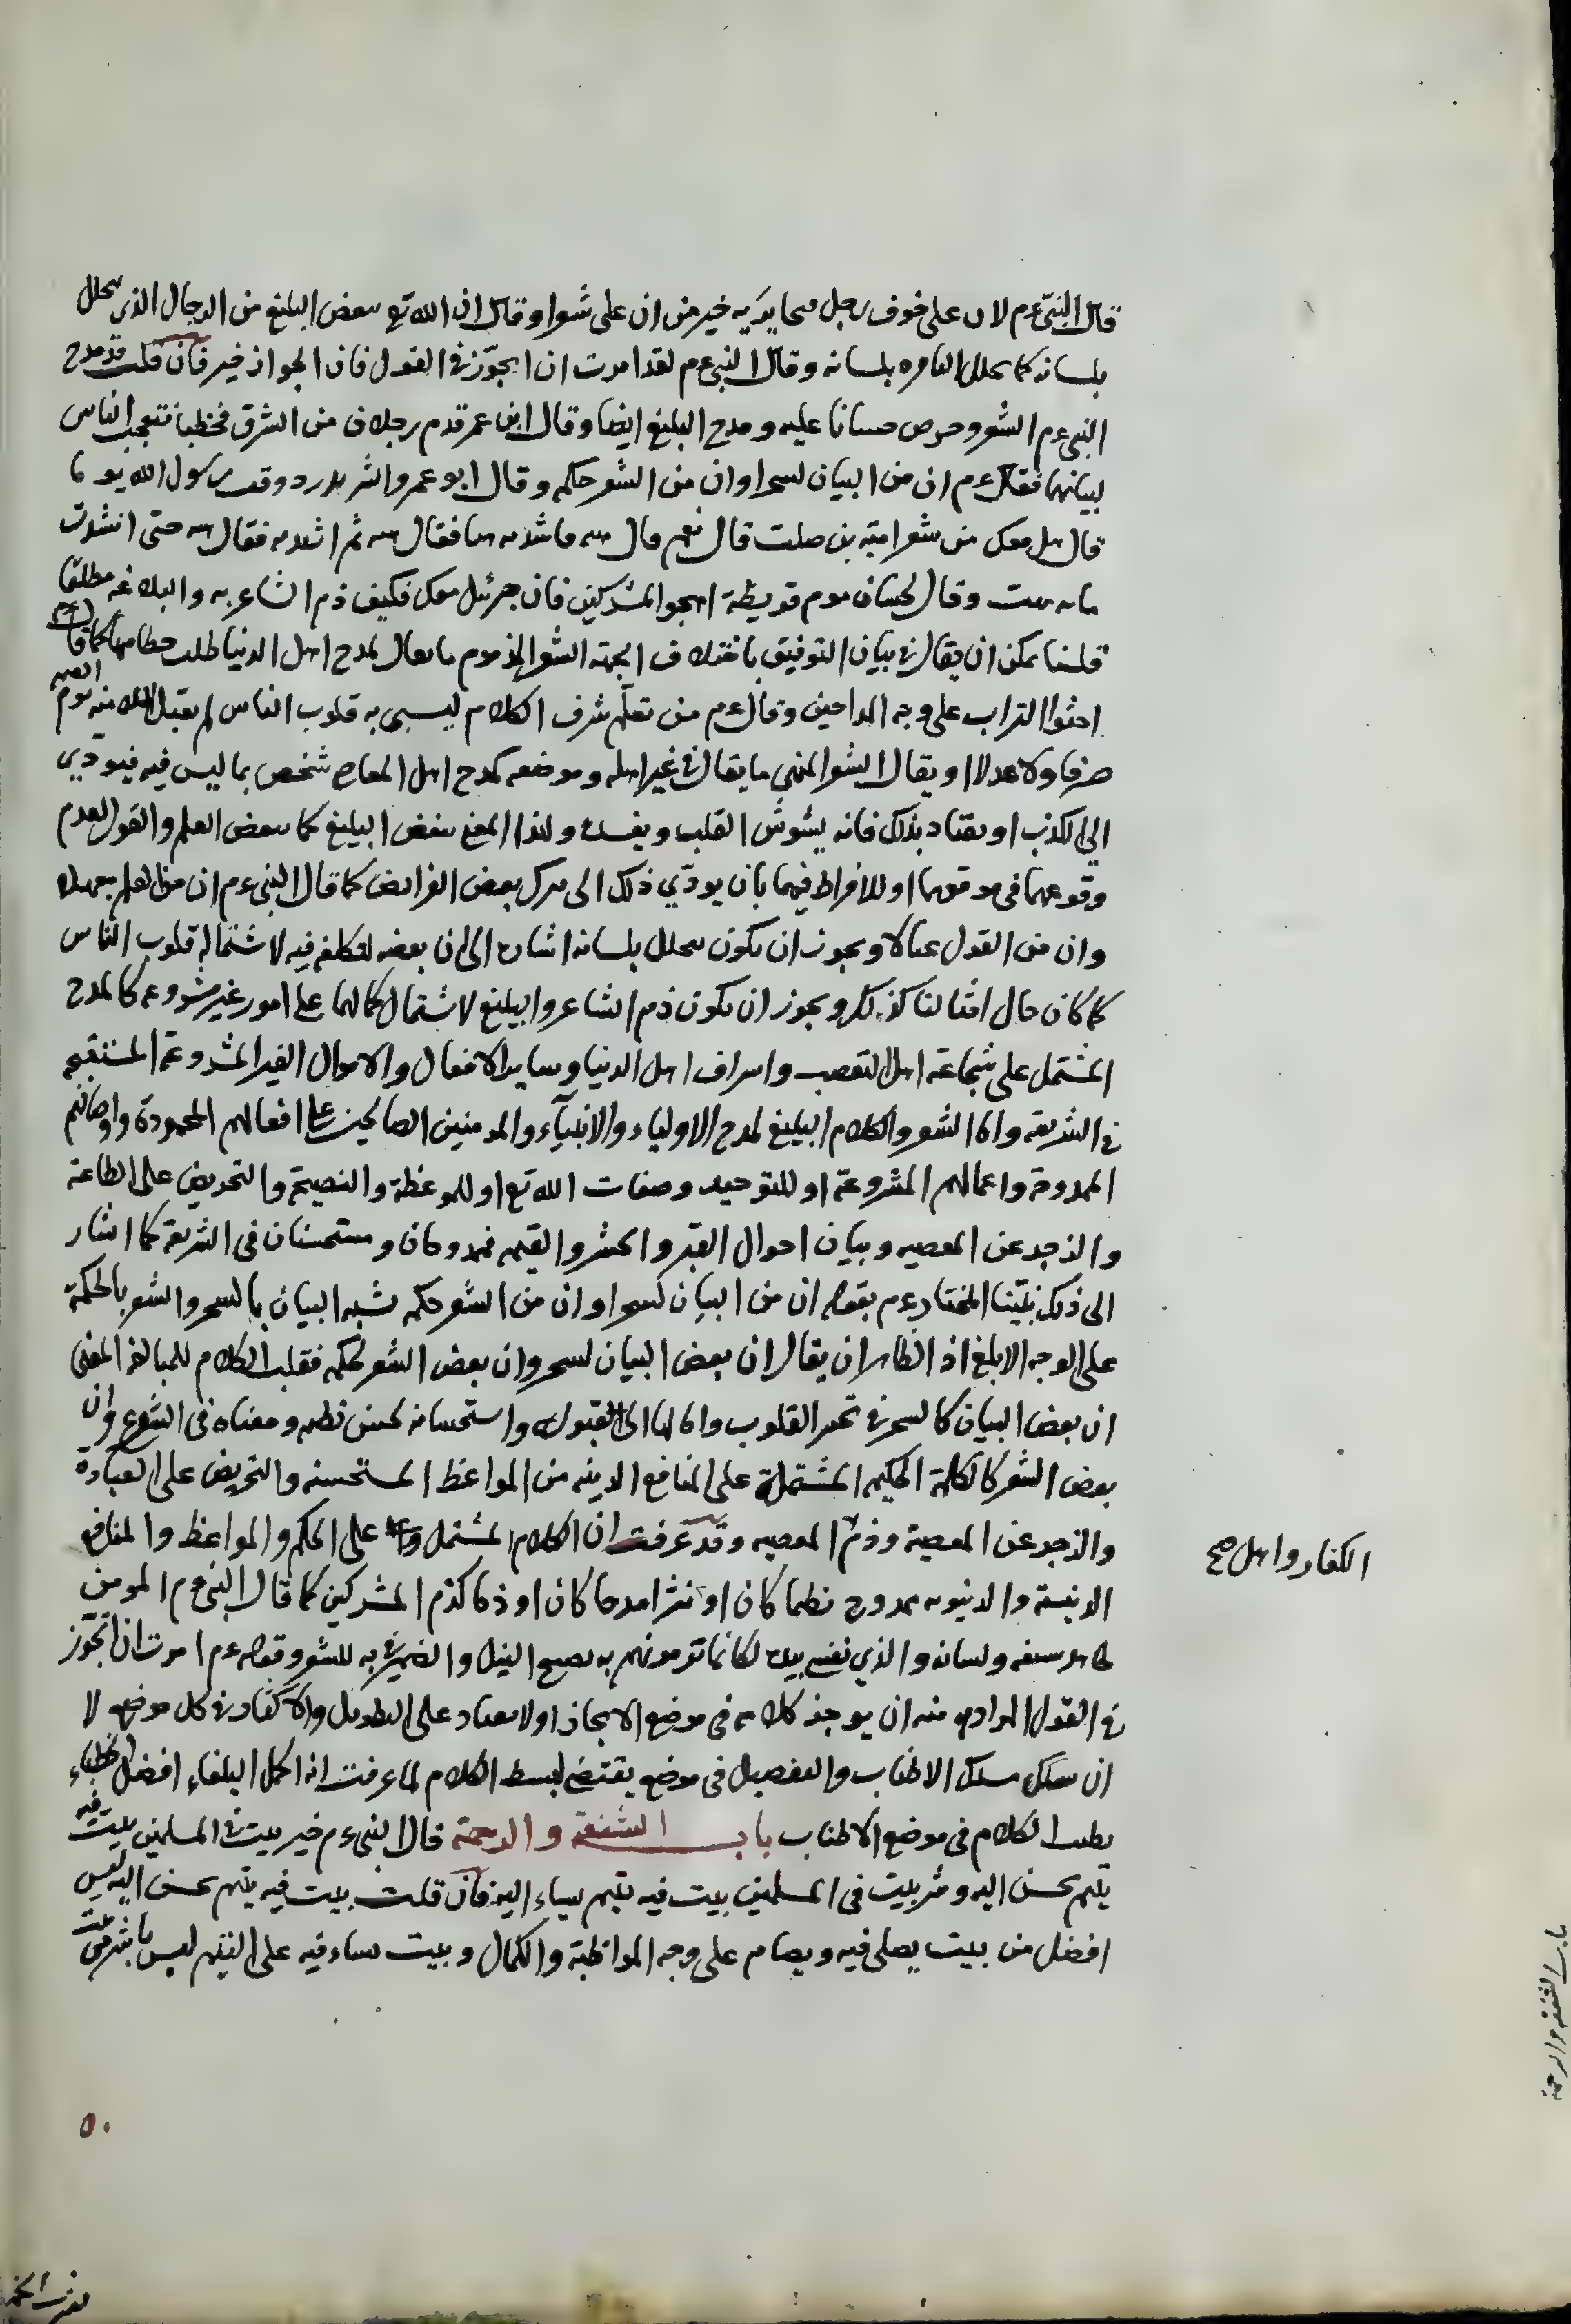 قال النبى ءم لان على خوف رجل قيحا يريه خير من ان على شعرا وقال ان الله تع يبغض البليغ من الرجال الذى يتخلل
بلسانه كما يتخلل الباقره بلسانه وقال النبى ءم لقد امرت ان اتجوّز فى القول فان الجواز خير فان قلت قد مدح
النبى ءم الشعر وحرص حسانا عليه ومدح البليغ ايضا وقال ابن عمر قدم رجلان من الشرق فخطبا فتعجب الناس
لبيانهما فقال ءم ان من البيان لسحرا وان من الشعر حكمه وقال ابو عمرو الشريد ردفت رسول الله يوما
قال هل معك من شعر امية بن صلت قال نعم قال هيه فانشدته بيتا فقال هيه ثم انشدته فقال هيه حتى انشدت
مايه بيت وقال لحسان يوم قريظة اهجو المشركين فان جبرئيل معك فكيف ذم الشاعر به والبلاغه مطلقا
قلنا يمكن ان يقال فى بيان التوفيق باختلاف الجهة الشعر المذموم ما يقال لمدح اهل الدنيا طلب حطامها كما قال ءم
احثوا التراب على وجه المداحين وقال ءم من تعلّم شرف الكلام ليسبى به قلوب الناس لم يقبل الله منه يوم القيمه
صرفا ولا عدلا او يقال الشعر المنهى ما يقال فى غير اهله وموضعه كمدح اهل المعاصى شخص بما ليس فيه فيودّي
الى الكذب او يعتاد بذلك فانه يشوش القلب ويفسده ولهذا المعنى يبغض البليغ كما يبغض العلم والقول لعدم
وقوعهما فى موقعهما او للافراط فيهما بان يودّي ذلك الى ترك بعض الفرايض كما قال النبى ءم ان من العلم جهلا
وان من القول عيالا ويجوز ان يكون يتخلل بلسانه اشارة الى ان بعضه لتكلفه فيه لاستمالة قلوب الناس
كما كان حال امثالنا كذلك ويجوز ان يكون ذم الشاعر والبليغ لاشتمال كمالهما على امور غير مشروعه كالمدح
المشتمل على شجاعة اهل التعصب واسراف اهل الدنيا وساير الافعال والاموال الغير المشروعة المستقبحه
فى الشريعه واما الشعر والكلام البليغ لمدح الاولياء والانبيآء والمومنين الصالحين على افعالهم المحمودة واوصافهم
الممدوحة واعمالهم المشروعة او للتوحيد وصفات الله تع او للموعظة والنصيحة والتحريض على الطاعة
والزجر عن المعصيه وبيان احوال القبر والحشر والقيمه فممدوحان ومستحسنان فى الشريعه كما اشار
الى ذلك نبيّنا المختار ءم بقوله ان من البيان لسحرا وان من الشعر حكمه شبه البيان بالسحر والشعر بالحكمة
على الوجه الابلغ اذ الظاهر ان يقال ان بعض البيان لسحر وان بعض الشعر لحكمه فقلب الكلام للمبالغه المعنى
ان بعض البيان كالسحر فى تحير القلوب وامالها الى القبول واستحسانه لحسن نظمه ومعناه فى الشرع وان
بعض الشعر كالكلمة الحكيمه المشتملة على المنافع الدينه من المواعظ المستحسنه والتحريض على العبادة
والزجر عن المعصية وذمّ المعصيه وقد عرفت ان الكلام المشتمل على الحكم والمواعظ والمنافع
الدينية والدنيويه ممدوح نظما كان او نثرا مدحا كان او ذما كذم المشركين كما قال النبى ءم المومن
يجاهد بسيفه ولسانه والذي نفسى بيده لكانما ترمونهم به نضح النبل والضمير فى به للشعر وقوله ءم امرت ان اتجوّز
فى القول المراد منه ان يوجز كلامه فى موضع الايجاز او لا يعتاد على التطويل والاكثار فى كل موضع لا
ان يسلك مسلك الاطناب والتفصيل فى موضع يقتضى لبسط الكلام لما عرفت انه اكمل البلغاء افضل الخطباء
يطلب الكلام فى موضع الاطناب باب الشفقة والرحمة قال النبى ءم خير بيت فى المسلمين بيت فيه
يتيم يحسن اليه وشر بيت فى المسلمين بيت فيه يتيم يساء اليه فان قلت بيت فيه يتيم يحسن اليه ليس
افضل من بيت يصلى فيه ويصام على وجه المواظبة والكمال وبيت يساء فيه على اليتيم ليس باشر من بيت
الكفار واهل صح
باب الشفقه والرحمة
٥٠